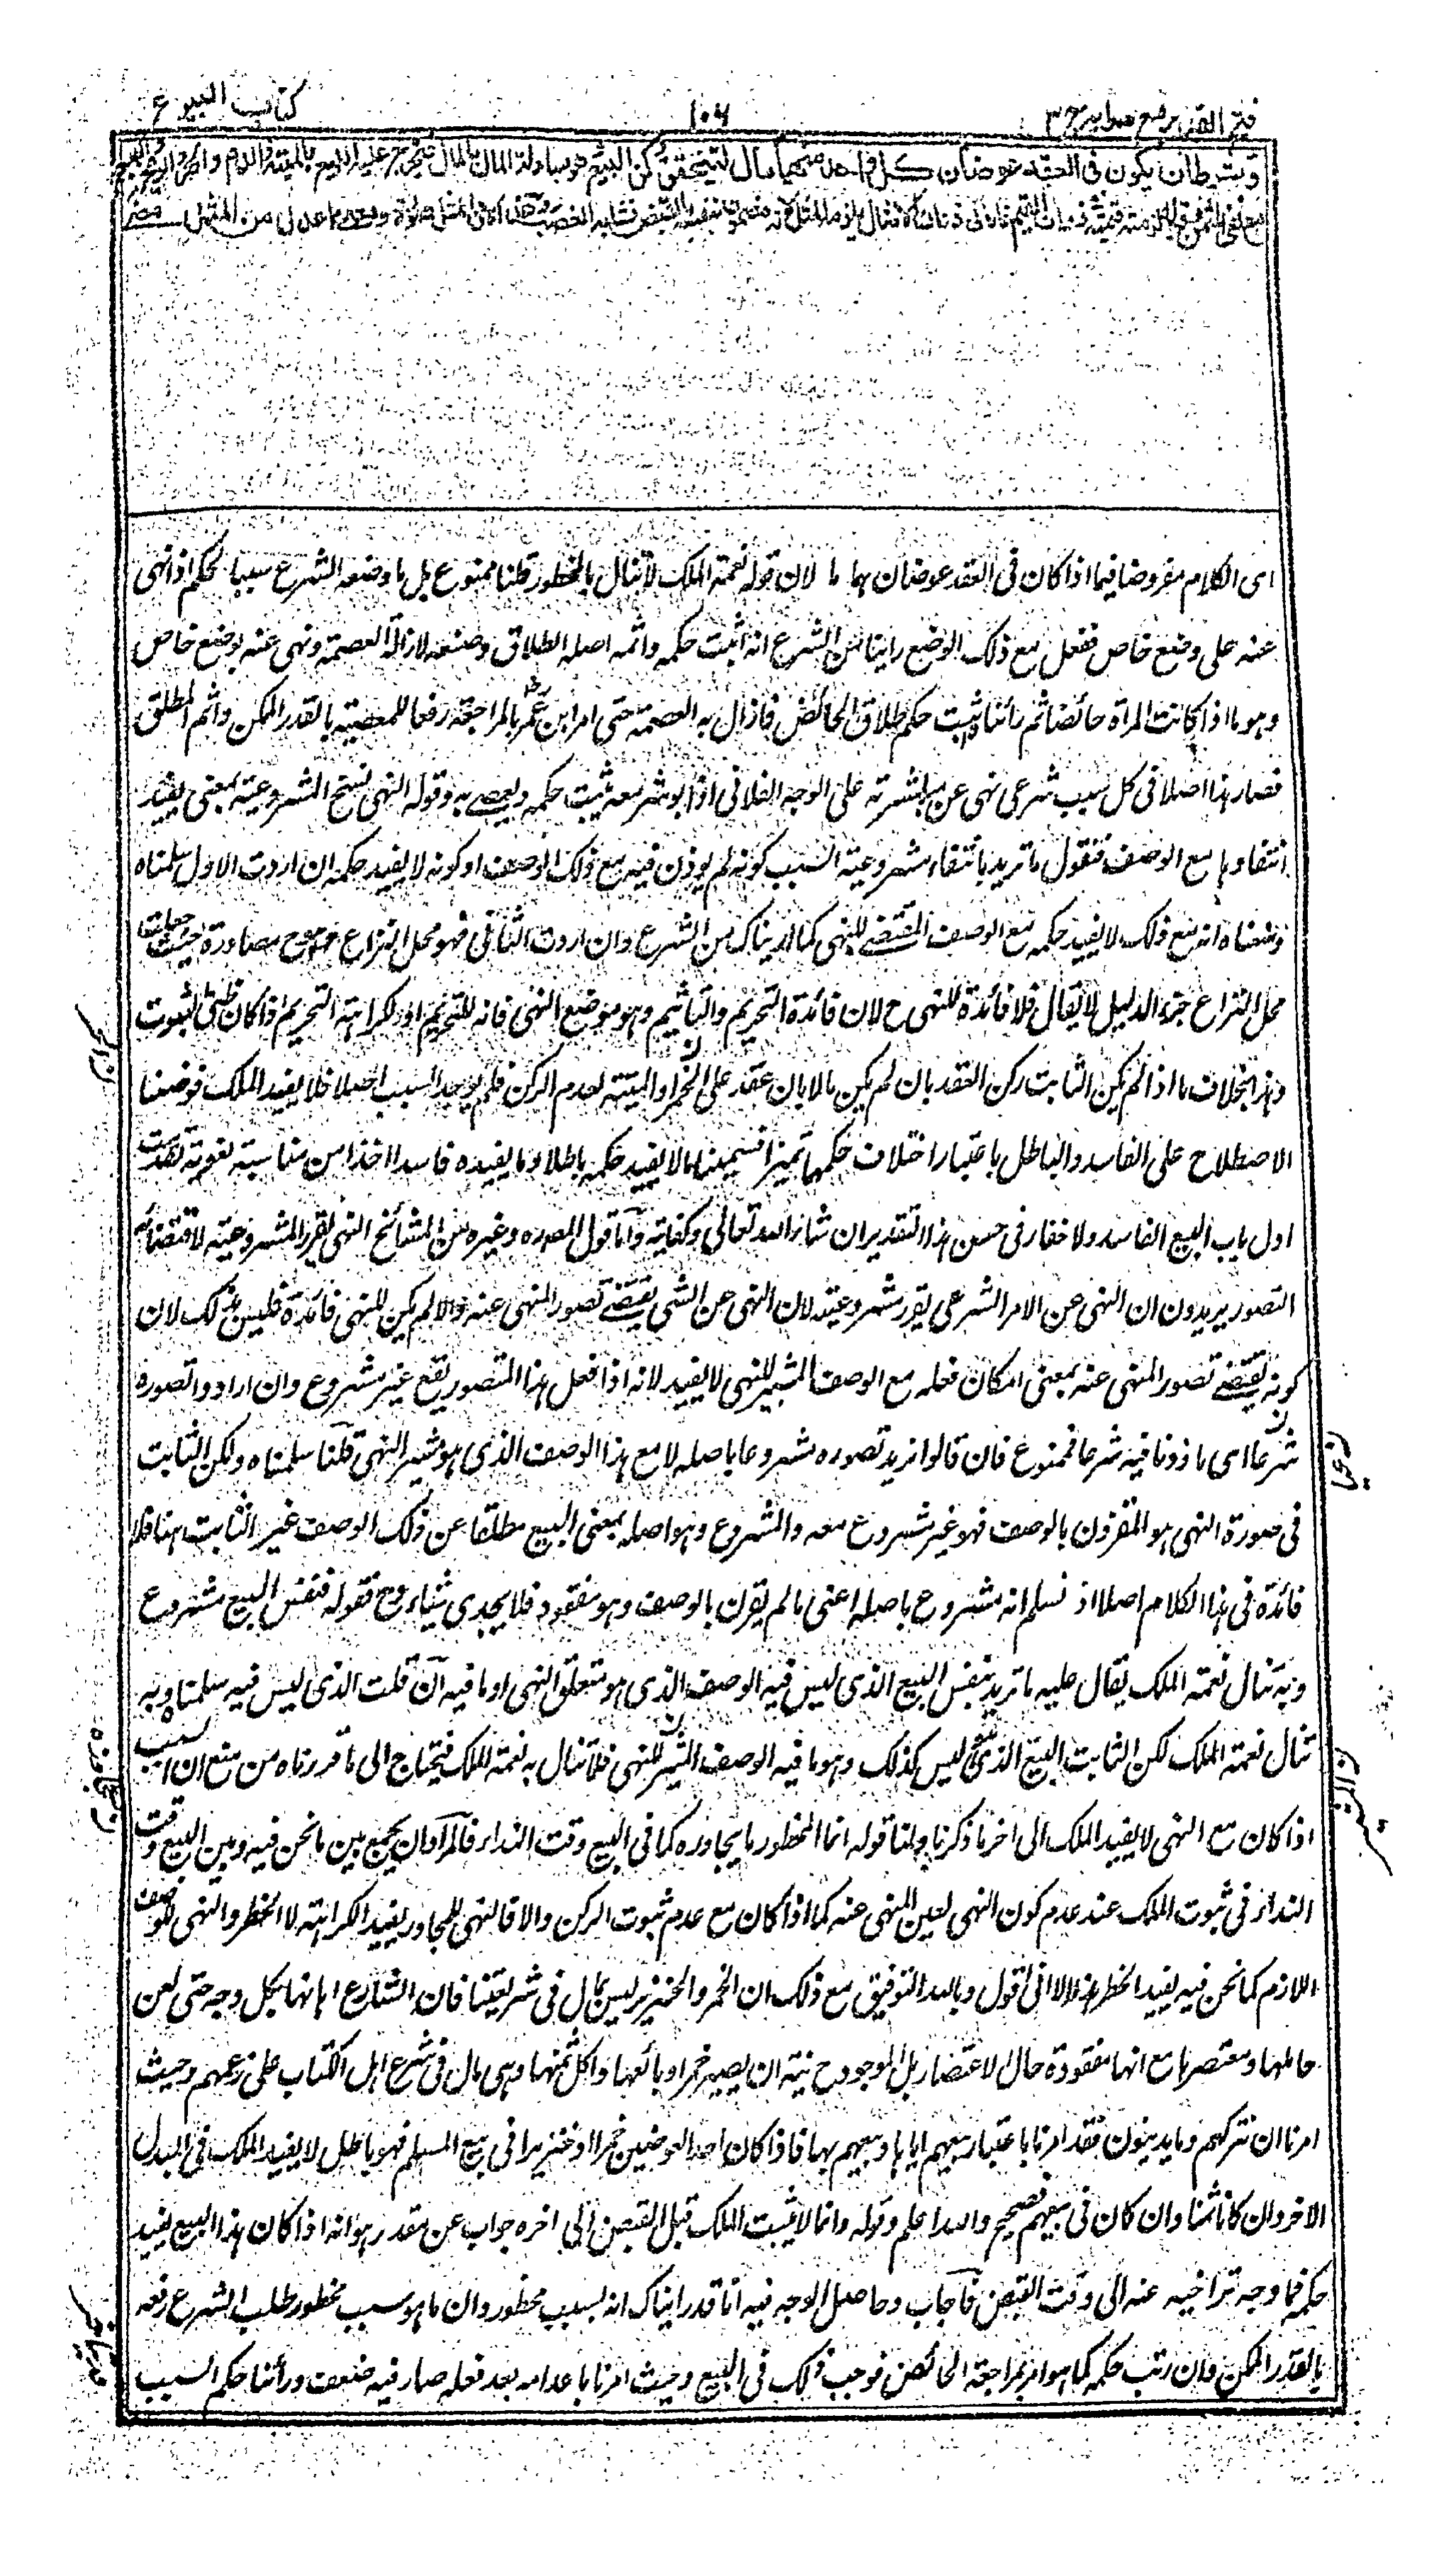 فتح القدير مع هدايه ج ٣
١٠٦
كتاب البيوع
ويشترط ان يكون فى العقد عوضان كل واحد منهما مال ليتحقق ركن البيع وهو مبادلة المال بالمال فيخرج عليه البيع بالميتة والدم والحر والريح
اى الكلام مفروضا فيما اذا كان فى العقد عوضان هما ما لان قوله نعمة الملك لا تنال بالمحظور قلنا ممنوع بل ما وضعه الشرع سببا لحكم اذا نهى
عنه على وضع خاص ففعل مع ذلك الوضع راينا من الشرع انه اثبت حكمه واثمه اصله الطلاق وضعه لازالة العصمة ونهى عنه بوضع خاص
وهو ما اذا كانت المرأة حائضا ثم رأينا اثبت حكم طلاق الحائض فازال به العصمة حتى امر ابن عمر بالمراجعة رفعا للمعصية بالقدر الممكن واثم المطلق
فصار هذا اصلا فى كل سبب شرعى نهى عن مباشرته على الوجه الفلانى اذا بوشر معه ثبت حكمه ويعصى به وقوله النهى نسخ المشروعية بمعنى يفيد
انتفاءها مع الوصف فنقول ما تريد بانتفاء مشروعية السبب كونه لم يوذن فيه مع ذلك الوصف او كونه لا يفيد حكمه ان اردت الاول سلمناه
ومنعناه انه مع ذلك لا يفيد حكمه مع الوصف المقتضى للنهى كما اريناك من الشرع وان اردت الثانى فهو محل النزاع فهو ح مصادرة حيث جعلت
محل النزاع جزء الدليل لا يقال فلا فائدة للنهى ح لان فائدة التحريم والتاثيم وهو موضع النهى فانه للتحريم او لكراهة التحريم اذا كان ظنى الثبوت
وهذا بخلاف ما اذا لم يكن الثابت ركن العقد بان لم يكن مالا بان عقد على الخمر او الميتة لعدم الركن فلم يوجد السبب اصلا فلا يفيد الملك فوضعنا
الاصطلاح على الفاسد والباطل باعتبار اختلاف حكمهما تميزا فسمينا ما لا يفيد حكمه باطلا وما يفيده فاسدا اخذا من مناسبة لغوية تقدمت
اول باب البيع الفاسد ولا خفاء فى حسن هذا التقدير ان شاء الله تعالى وكفايته واما قول المصر ره وغيره من المشائخ النهى يقرر المشروعية لاقتضائه
التصور يريدون ان النهى عن الامر الشرعى يقرر مشروعيته لان النهى عن الشى يقتضى تصور المنهى عنه والا لم يكن للنهى فائدة فليس بذلك لان
كونه يقتضى تصور المنهى عنه بمعنى امكان فعله مع الوصف المثير للنهى لا يفيد لانه اذا فعل هذا المتصور يقع غير مشروع وان ارادوا تصوره
شرعا اى ماذونا فيه شرعا فممنوع فان قالوا نريد تصوره مشروعا باصله لا مع هذا الوصف الذى هو مثير النهى قلنا سلمناه ولكن الثابت
فى صورة النهى هو المقرون بالوصف فهو غير مشروع معه والمشروع وهو اصله بمعنى البيع مطلقا عن ذلك الوصف غير الثابت هنا فلا
فائدة فى هذا الكلام اصلا اذ نسلم انه مشروع باصله اعنى ما لم يقرن بالوصف وهو مفقود فلا يجدى شيئا وح فقوله فنفس البيع مشروع
وبه تنال نعمة الملك يقال عليه ما تريد بنفس البيع الذى ليس فيه الوصف الذى هو متعلق النهى او ما فيه ان قلت الذى ليس فيه سلمناه وبه
تنال نعمة الملك لكن الثابت البيع الذى ليس كذلك وهو ما فيه الوصف المثير للنهى فلا تنال به نعمة الملك فيحتاج الى ما قررناه من منع ان السبب
اذا كان مع النهى لا يفيد الملك الى اخر ما ذكرنا ولنا قوله انما المحظور ما يجاوره كما فى البيع وقت النداء فالمراد ان يجمع بين ما نحن فيه وبين البيع وقت
النداء فى ثبوت الملك عند عدم كون النهى لعين المنهى عنه كما اذا كان مع عدم ثبوت الركن والا فالنهى للمجاور يفيد الكراهة لا الحظر والنهى للوصف
اللازم كما نحن فيه يفيد الحظر هذا الا انى اقول وبالله التوفيق مع ذلك ان الخمر والخنزير ليس بمال فى شريعتنا فان الشارع اهانها بكل وجه حتى لعن
حاملها ومعتصرها مع انها مفقودة حال الاعتصار بل الموجود ح نية ان يصير خمرا وبائعها واكل ثمنها وهى مال فى شرع اهل الكتاب على زعمهم وحيث
امرنا ان نتركهم وما يدينون فقد امرنا باعتبار بيعهم اياها وبيعهم بها فاذا كان احد العوضين خمرا او خنزيرا فى بيع المسلم فهو باطل لا يفيد الملك فى البدل
الاخر وان كانا ثمنا وان كان فى بيعهم فصحيح والله اعلم وقوله وانما لا يثبت الملك قبل القبض الى اخره جواب عن مقدر هو انه اذا كان هذا البيع يفيد
حكمه فما وجه تراخيه عنه الى وقت القبض فاجاب وحاصل الوجه فيه انا قد اريناك انه بسبب محظور وان ما هو سبب محظور طلب الشرع رفعه
بالقدر الممكن وان رتب حكمه كما هو امر بمراجعة الحائض فوجب ذلك فى البيع وحيث امرنا باعدامه بعد فعله صار فيه ضعف ورأينا حكم السبب